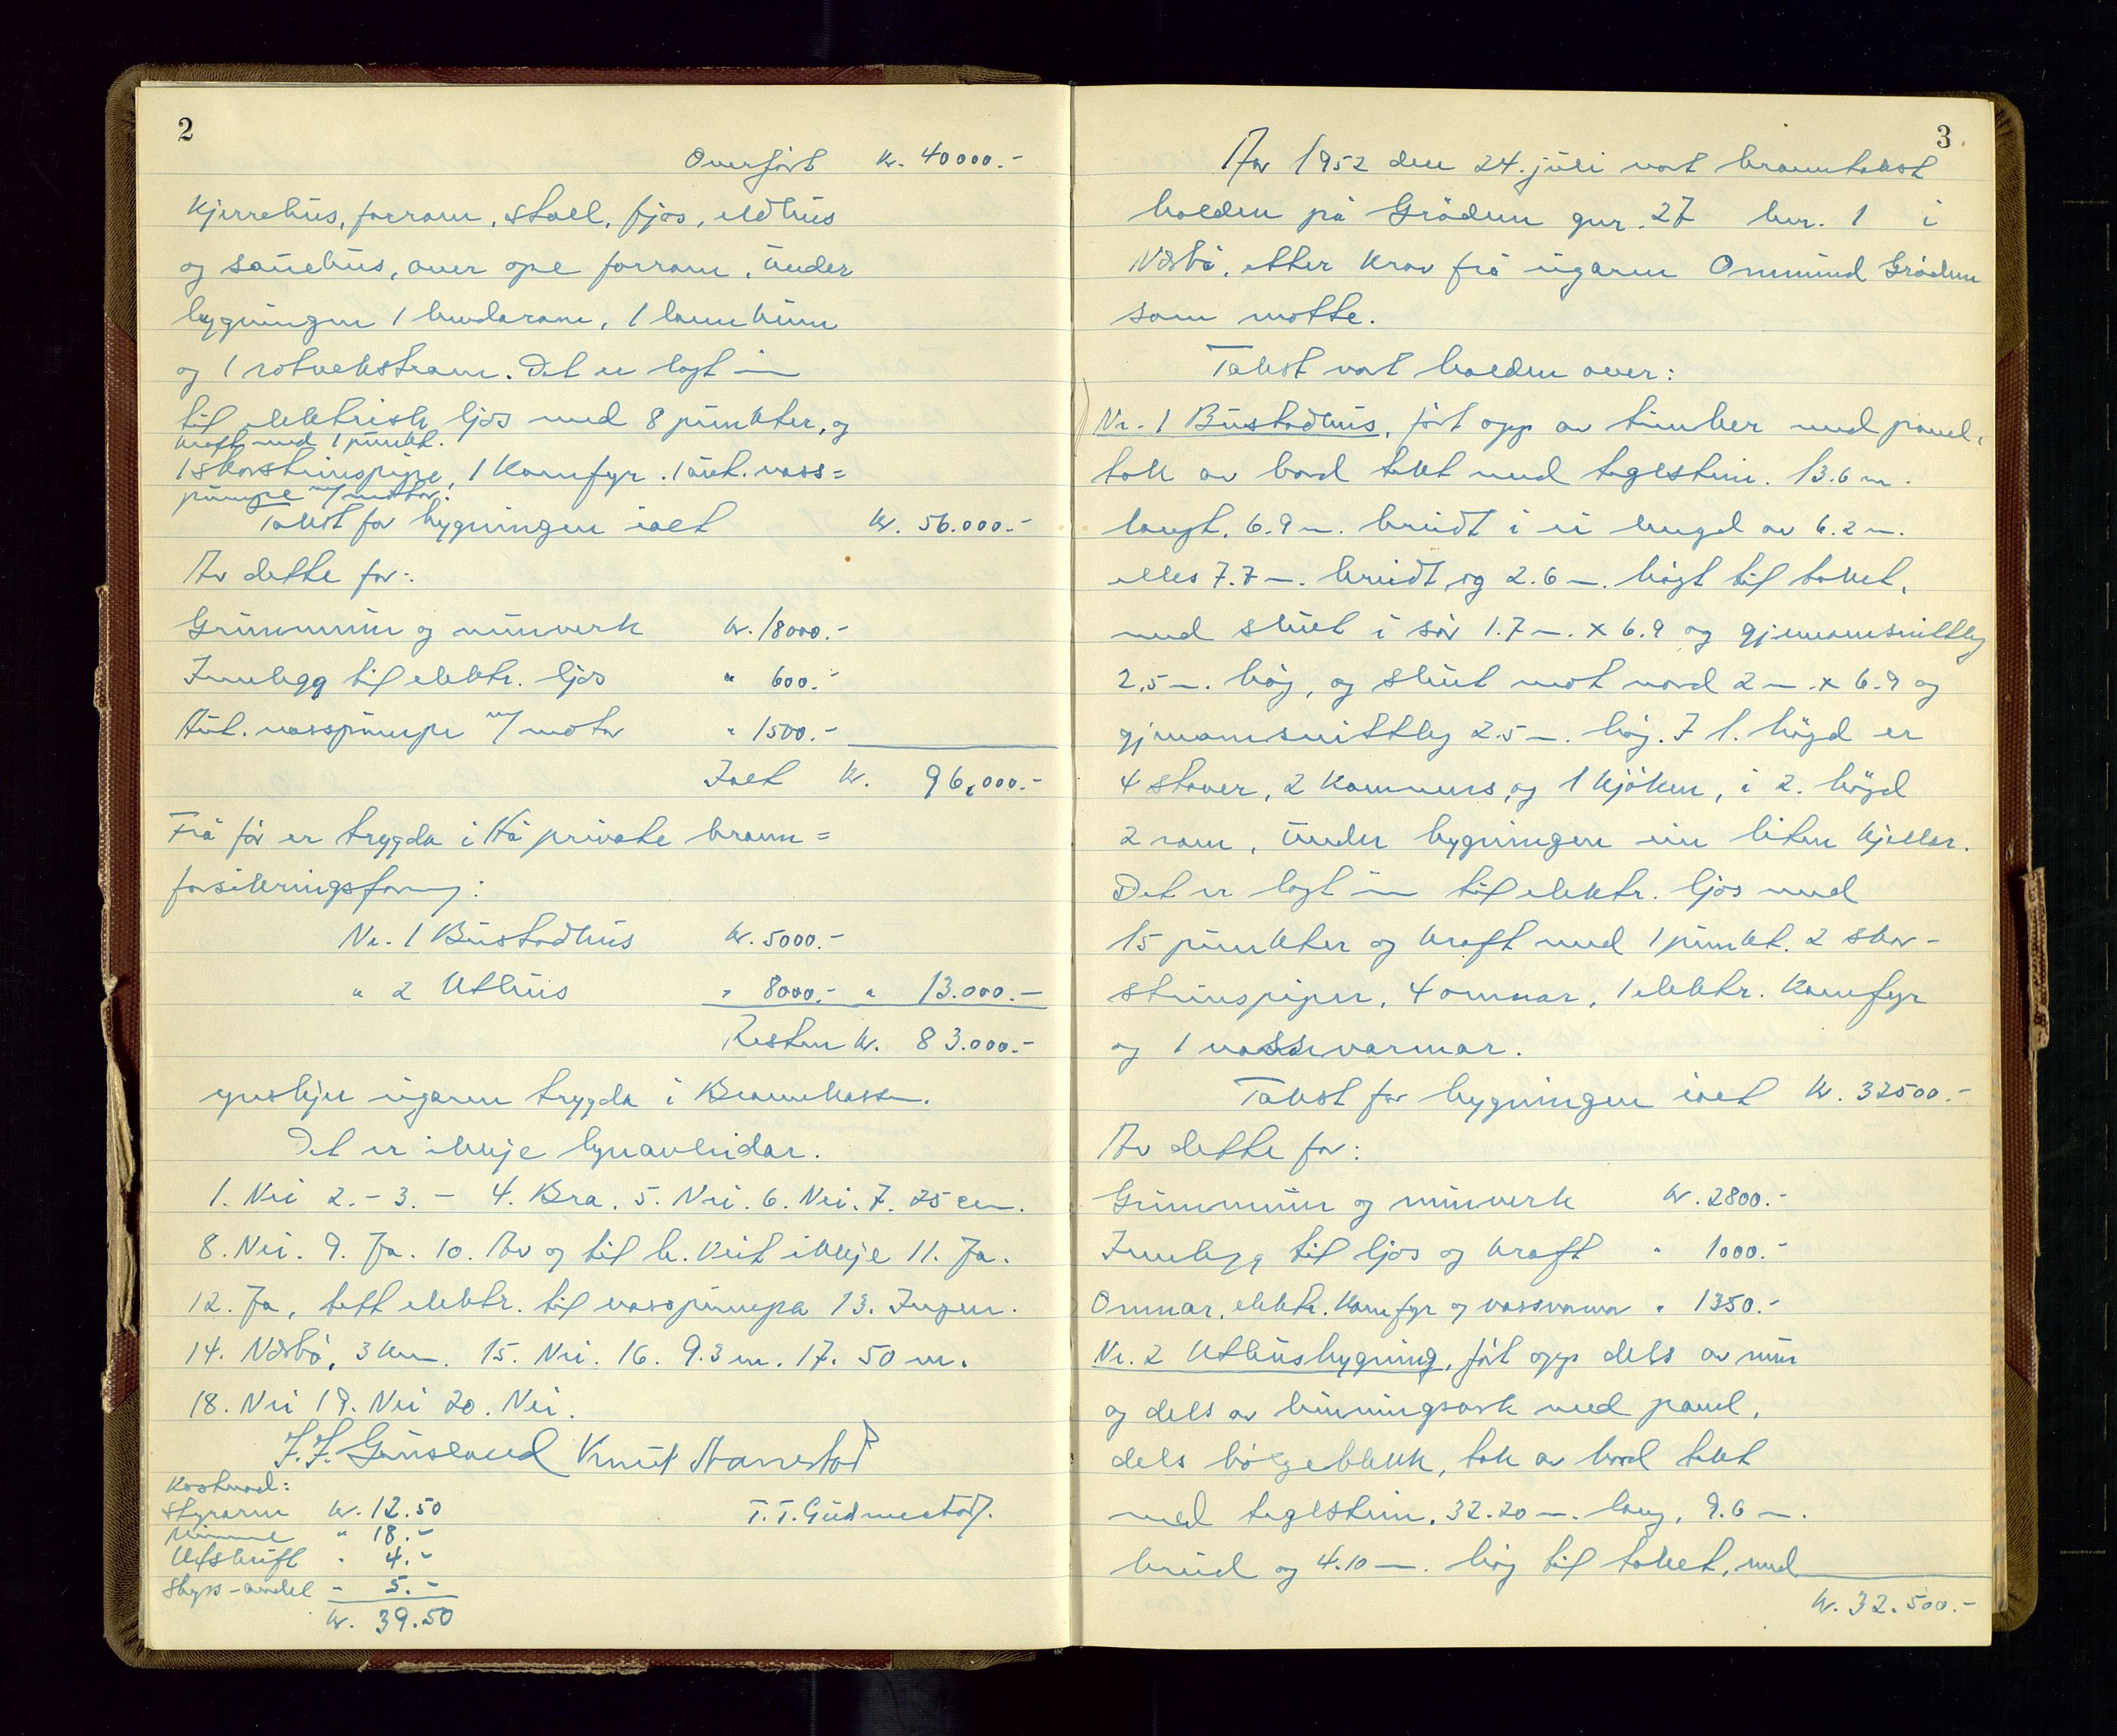 2
Overført kr. 40000.-
Kjerrehus, forrom, stall, fjos, eldhus
og sauehus, over ope forrom, under
bygningen 1 honderom, 1 land kum
og 1 rotvekstrom. Det er lagt inn
til elektrisk ljos med 8 punkter, og
kraft med 1 punkt.
1 skorsteinspipe, 1 Komfyr. 1 aut. vass=
pumpe m/motor.
Takst for bygningen ialt kr. 56.000.-
Av dette for:
Grunnmur og murverk kr. 18000.-
Innlegg til elektr. ljos " 600.-
Aut. vasspumpe m/motor " 1500.-
Ialt kr. 96.000.-
Frå før er trygda i Hå private brann=
forsikringsforng:
Nr. 1 Bustadhus kr. 5000.-
" 2 Uthus " 8000.- " 13.000.-
Resten kr. 83.000.-
ynskjer eigaren trygda i Brannkassen.
Det er ikkje lynavleidar.
1. Nei 2. - 3. - 4. Bra. 5. Nei. 6. Nei. 7. 25 cm.
8. Nei. 9. Ja. 10. Av og til h. Veit ikkje 11. Ja.
12. Ja, tett elektr. til vasspumpa 13. Ingen.
14. Nærbø, 3 km. 15. Nei. 16. 9.3 m. 17. 50 m.
18. Nei 19. Nei 20. Nei.
J. J. Grusland Knut Narrestad
T. T. Gudmestad.
Kostnad:
Styraren kr. 12.50
Minne " 18.-
Utskrift " 4.-
Skyss-andel - 5.-
kr. 39.50
3
År 1952 den 24. juli vart branntakst
halden på Grödem gnr. 27 bnr. 1 i
Nærbø, etter krav frå eigaren Ommund Grödem
som møtte.
Takst vart halden over:
Nr. 1 Bustadhus, ført opp av timber med panel,
tak av bord tekt med teglstein. 13.6 m.
langt. 6.9 m. breidt i ei lengd av 6.2 m.
elles 7.7 m. breidt, og 2.6 m. høgt til taket,
med skut i sør 1.7 m. x 6.9 og gjenomsnittleg
2.5 m. høg, og skut mot nord 2 m. x 6.9 og
gjenomsnittleg 2.5 m. høg. I 1. høgd er
4 stover, 2 kammers, og 1 kjøken, i 2. høgd
2 rom, under bygningen ein liten kjellar.
Det er lagt inn til elektr. ljos med
15 punkter og kraft med 1 punkt. 2 skor-
steinspiper, 4 omnar, 1 elektr. komfyr
og 1 vassvarmar.
Takst for bygningen ialt kr. 32500.-
Av dette for:
Grunnmur og murverk kr. 2800.-
Innlegg til ljos og kraft " 1000.-
Omnar, elektr. komfyr og vassvarmar " 1350.-
Nr. 2 Uthusbygning, ført opp dels av mur
og dels av binningsverk med panel,
dels bølgeblekk, tak av bord tekt
med teglstein. 32.20 m. lang, 9.6 m.
breid og 4.10 m. høg til taket, med
kr. 32.500.-